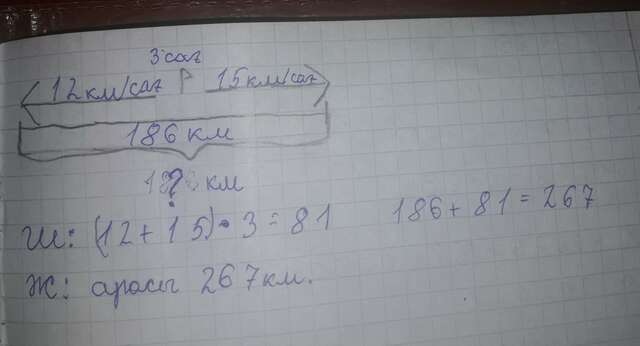 3 сағ
12 км/сағ 15 км/сағ
186 км
? км
Ш: (12 + 15) · 3 = 81 186 + 81 = 267
Ж: арасы 267 км.